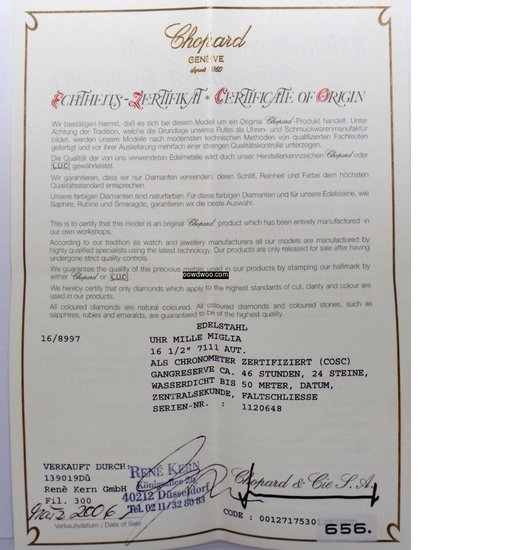 Chopard
GENÈVE
depuis 1860
ECHTHEITS-ZERTIFIKAT • CERTIFICATE OF ORIGIN
Wir bestätigen hiermit, daß es sich bei diesem Modell um ein Original Chopard-Produkt handelt. Unter
Achtung der Tradition, welche die Grundlage unseres Rufes als Uhren- und Schmuckwarenmanufaktur
bildet, werden unsere Modelle nach modernsten technischen Methoden von qualifizierten Fachleuten
gefertigt und vor ihrer Auslieferung mehrfach einer strengen Qualitätskontrolle unterzogen.
Die Qualität der von uns verwendeten Edelmetalle wird durch unser Herstellerkennzeichen Chopard oder
L.U.C gewährleistet.
Wir garantieren, dass wir nur Diamanten verwenden, deren Schliff, Reinheit und Farbe dem höchsten
Qualitätsstandard entsprechen.
Unsere farbigen Diamanten sind naturfarben. Für diese farbigen Diamanten und für unsere Edelsteine, wie
Saphire, Rubine und Smaragde, garantieren wir die beste Auswahl.
This is to certify that this model is an original Chopard product which has been entirely manufactured in
our own workshops.
According to our tradition as watch and jewellery manufacturers all our models are manufactured by
highly qualified specialists using the latest technology. Our products are only released for sale after having
undergone strict quality controls.
We guarantee the quality of the precious metals used in our products by stamping our hallmark by
either Chopard or L.U.C
oowdwoo.com
We hereby certify that only diamonds which apply to the highest standards of cut, clarity and colour are
used in our products.
All coloured diamonds are natural coloured. All coloured diamonds and coloured stones, such as
sapphires, rubies and emeralds, are guaranteed to be of the highest quality.
EDELSTAHL
16/8997 UHR MILLE MIGLIA
16 1/2" 7111 AUT.
ALS CHRONOMETER ZERTIFIZIERT (COSC)
GANGRESERVE CA. 46 STUNDEN, 24 STEINE,
WASSERDICHT BIS 50 METER, DATUM,
ZENTRALSEKUNDE, FALTSCHLIESSE
SERIEN-NR. : 1120648
VERKAUFT DURCH:
139019Dû
Renè Kern GmbH
Fil. 300
RENÉ KERN
Königsallee 26
40212 Düsseldorf
Tel. 02 11/32 80 83
März 2006
Verkaufsdatum / Date of Sale
Chopard & Cie S.A.
CODE : 0012717530
656.